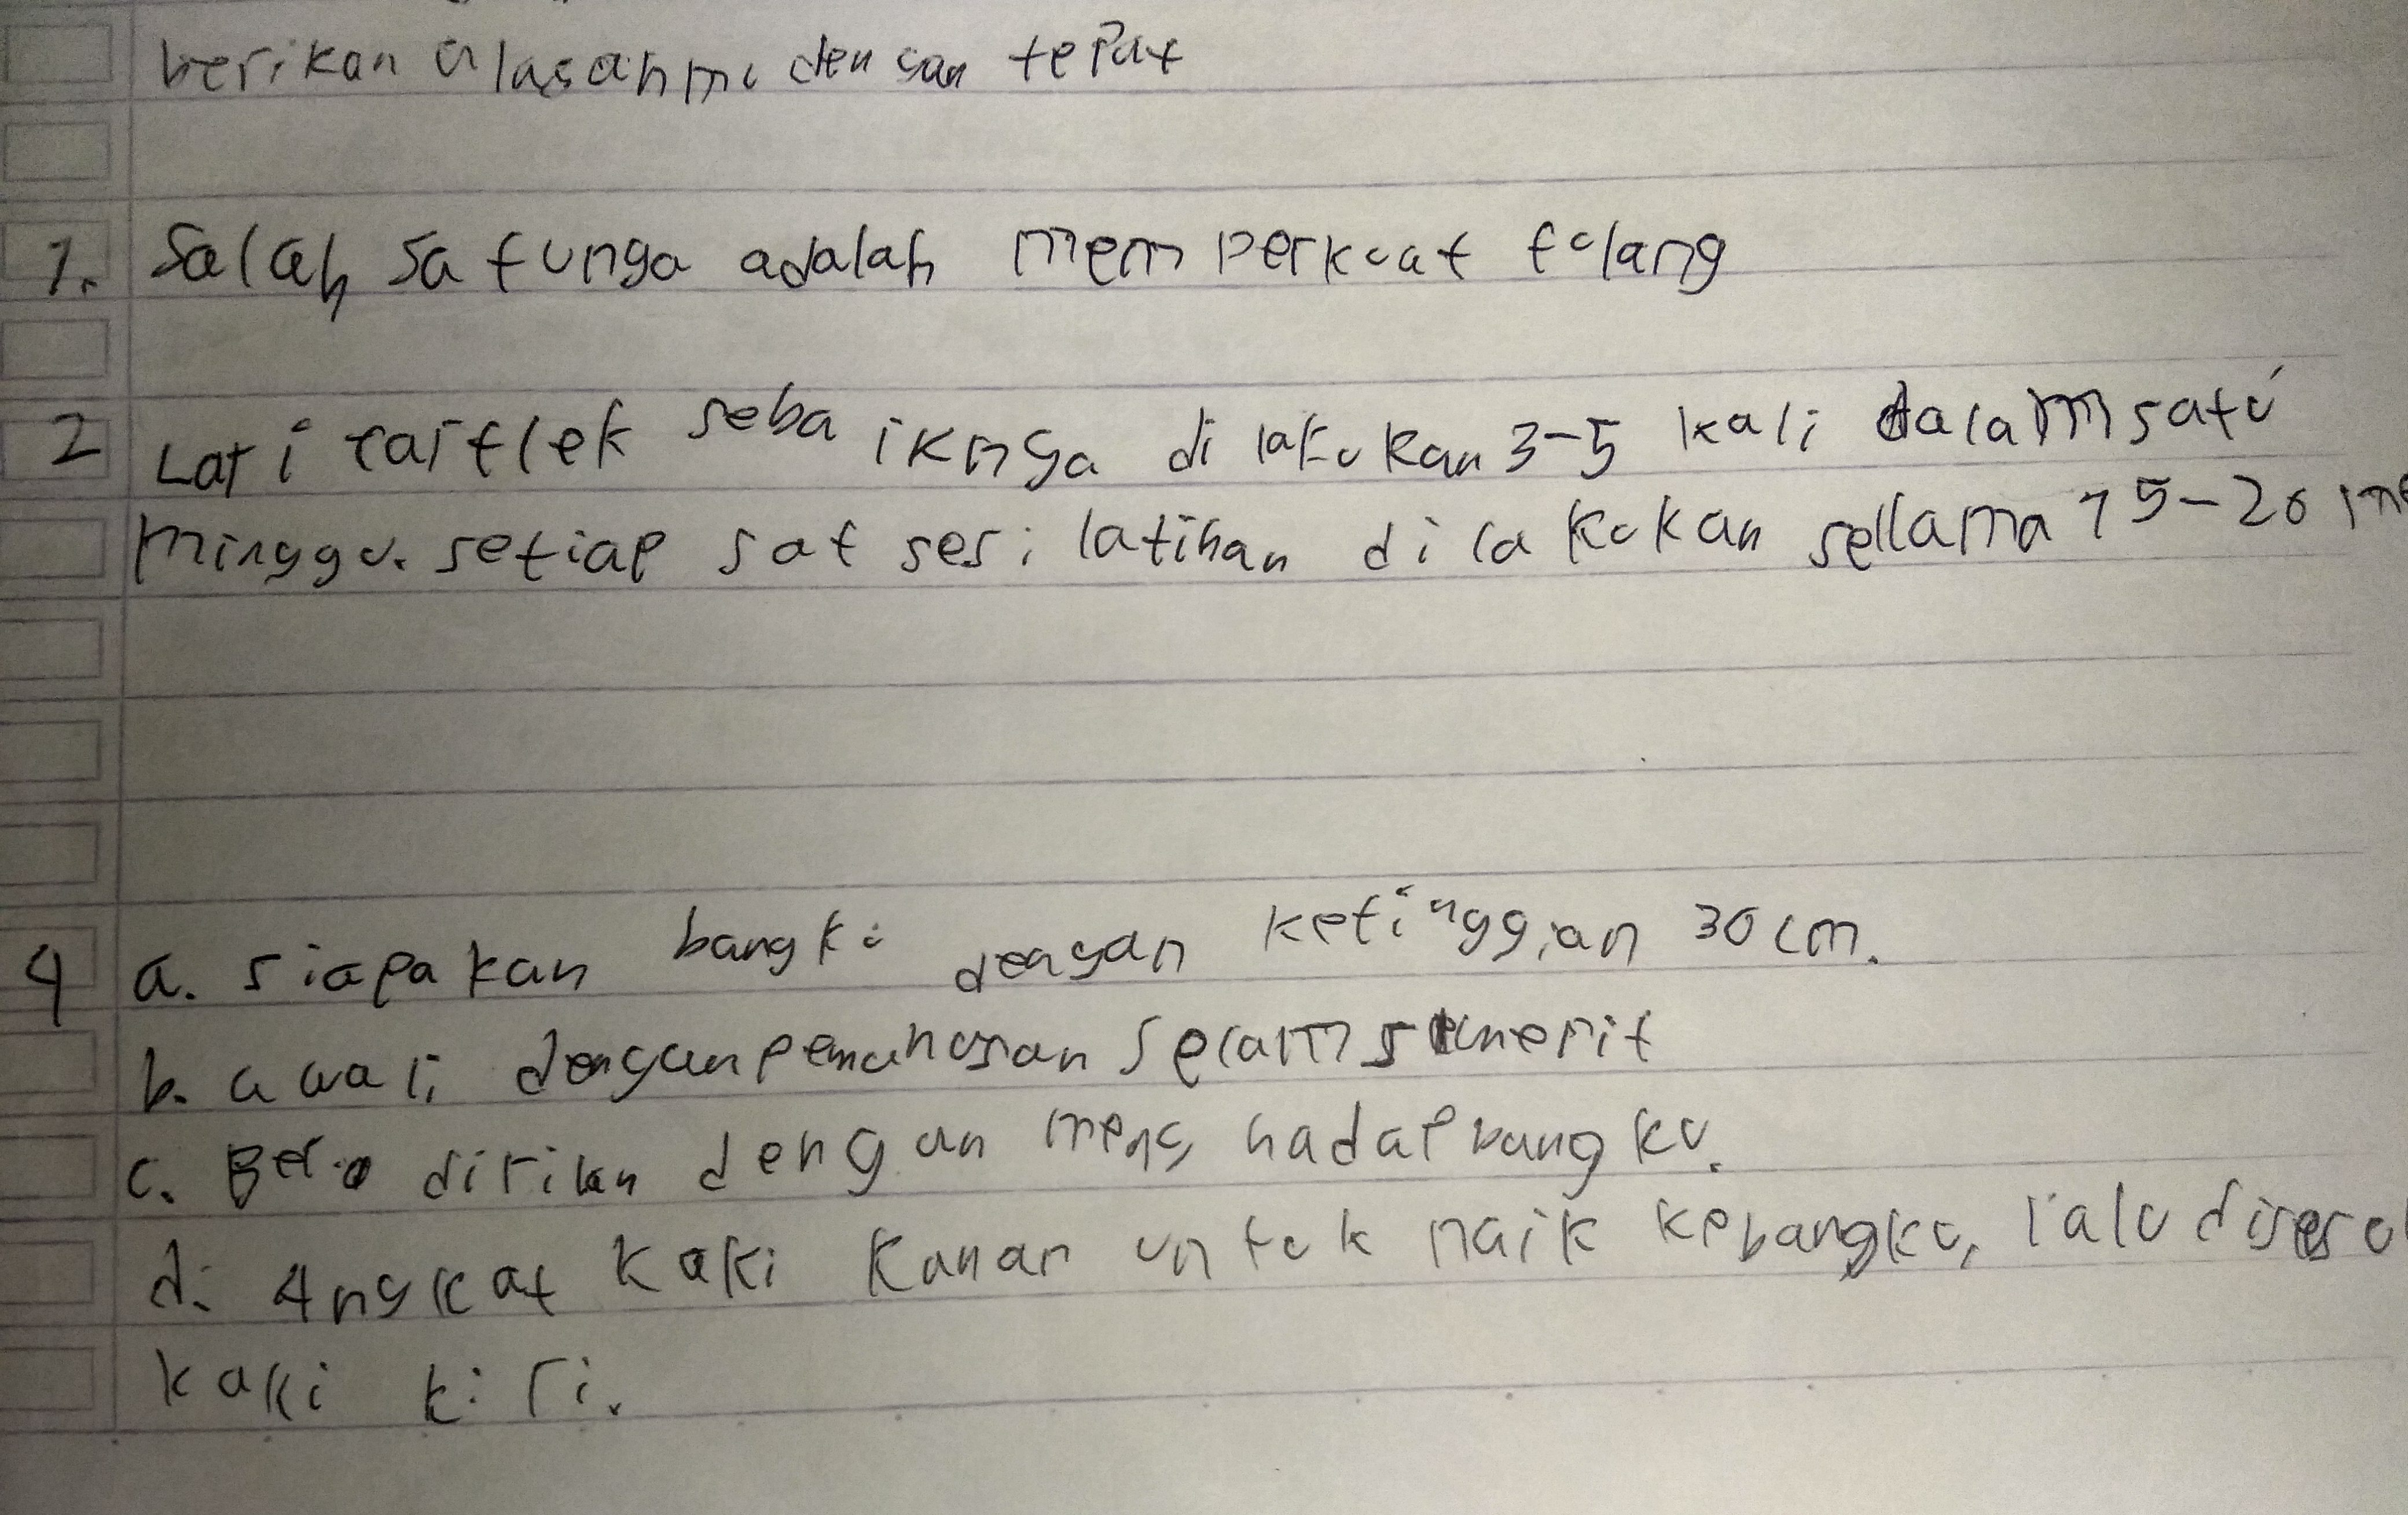 berikan alasanmu dengan tepat
1. Salah satunya adalah memperkuat tulang
2 Lari fartlek sebaiknya di lakukan 3-5 kali dalam satu
minggu. setiap sat sesi latihan di lakukan sellama 15-20 me
4 a. siapakan bangku dengan ketinggian 30 cm.
b. awali dengan pemanasan selam 5 menit
c. Ber dirilan dengan meng hadap bangku.
d. Angkat kaki kanan untuk naik kebangku, lalu disesu
kaki kiri.